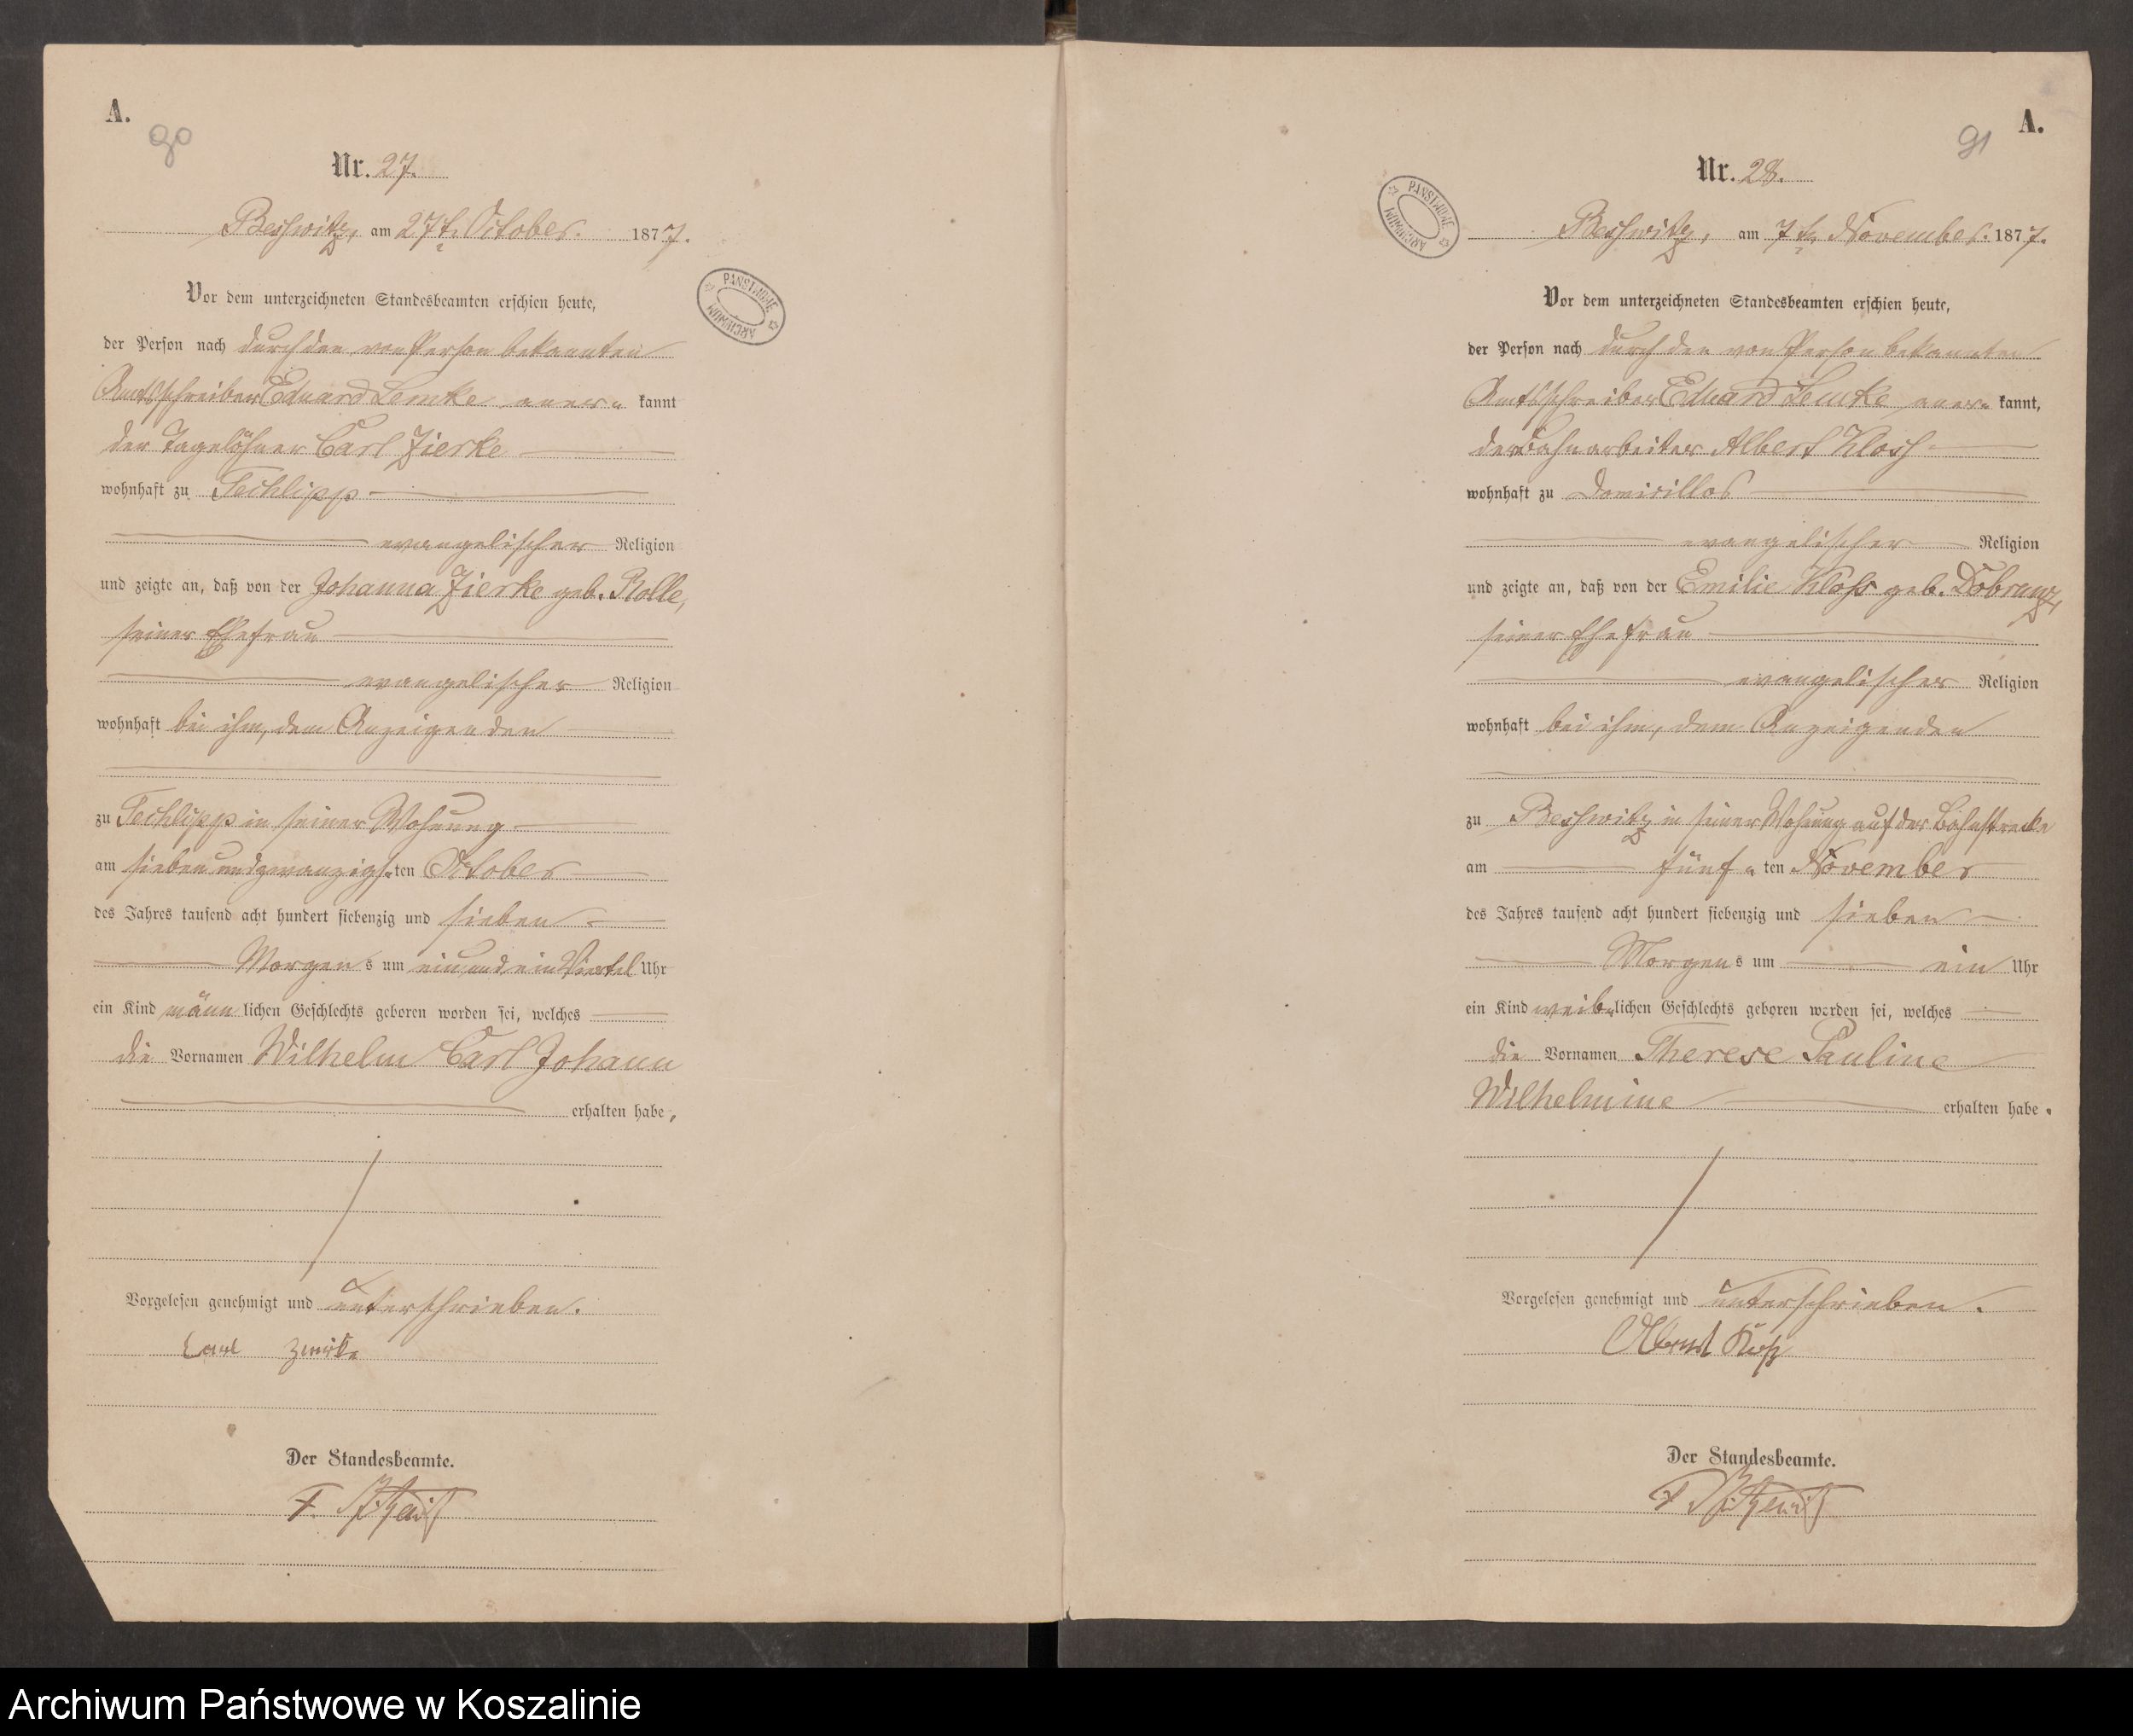 A.
90
Nr. 27.
Beßwitz, am 27t. October. 1877.
Vor dem unterzeichneten Standesbeamten erschien heute,
der Person nach durch den von Person bekannten
Amtsschreiber Eduard Lemke aner= kannt
der Tagelöhner Carl Zierke
wohnhaft zu Techlipp
evangelischer Religion
und zeigte an, daß von der Johanna Zierke geb. Rolle,
seiner Ehefrau
evangelischer Religion
wohnhaft bei ihm, dem Anzeigenden
zu Techlipp in seiner Wohnung
am siebenundzwanzigs= ten October
des Jahres tausend acht hundert siebenzig und sieben
Morgens um ein und ein Viertel Uhr
ein Kind männlichen Geschlechts geboren worden sei, welches
die Vornamen Wilhelm Carl Johann
erhalten habe,
Vorgelesen genehmigt und unterschrieben.
Carl
Der Standesbeamte.
F.
PAŃSTWOWE ARCHIWUM
A.
91
Nr. 28.
Beßwitz, am 7t. November. 1877.
Vor dem unterzeichneten Standesbeamten erschien heute,
der Person nach durch den von Person bekannten
Amtsschreiber Eduard Lemke aner= kannt,
der Bahnarbeiter Albert Kloß
wohnhaft zu domicillos
evangelischer Religion
und zeigte an, daß von der Emilie Kloß geb. Dobranz,
seiner Ehefrau
evangelischer Religion
wohnhaft bei ihm, dem Anzeigenden
zu Beßwitz in seiner Wohnung auf der Bahnstrecke
am fünf= ten November
des Jahres tausend acht hundert siebenzig und sieben
Morgens um ein Uhr
ein Kind weib=lichen Geschlechts geboren worden sei, welches
die Vornamen Therese Pauline
Wilhelmine erhalten habe.
Vorgelesen genehmigt und unterschrieben.
Albert
Der Standesbeamte.
F.
PAŃSTWOWE ARCHIWUM
Archiwum Państwowe w Koszalinie